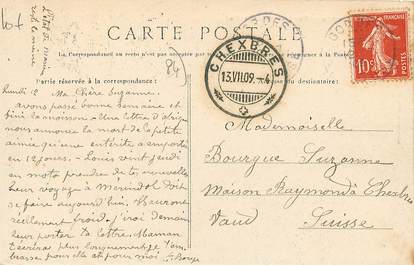 CARTE POSTALE
La Correspondance au recto n'est pas acceptée par tous
Partie réservée à la correspondance:
du destinataire:
84
CHEXBRES
13.VII.09.-4
POSTES
10c
Lundi 12 Ma Chère Suzanne.
avons passé bonne semaine et
fini la moisson - Une lettre d'
nous annonce la mort de la petite
amie qu'une entérite a emportée
en 12 jours. - Louis vint jeudi
en moto prendre de tes nouvelles
leur voyage à Merindol doit
se faire aujourd'hui, ils auront
réellement froid. j'irai demain
leur porter ta lettre. Maman
t'écrira plus longuement je t'em-
brasse pour
Mademoiselle
Bourgue Suzanne
Maison Raymond à Chexbres
Vaud Suisse